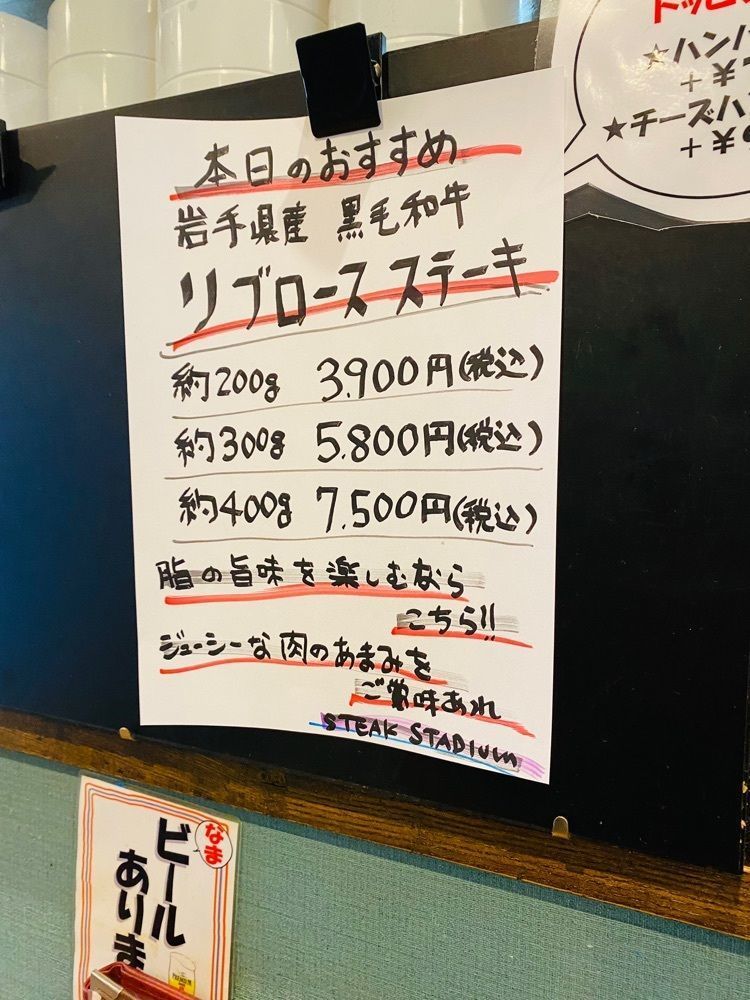 本日のおすすめ
岩手県産 黒毛和牛
リブロース ステーキ
約200g 3,900円(税込)
約300g 5,800円(税込)
約400g 7,500円(税込)
脂の旨味を楽しむなら
こちら!!
ジューシーな肉のあまみを
ご賞味あれ
STEAK STADIUM
★ハンバ
+¥
★チーズハ
+¥
なま
ビール
ありま